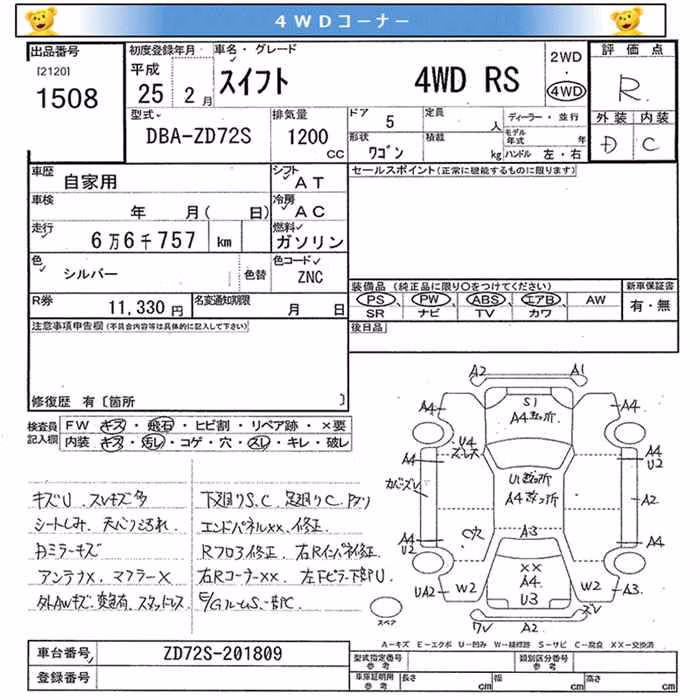 4WDコーナー
出品番号
[2120]
1508
初度登録年月
平成
25 2月
車名・グレード
スイフト 4WD RS
2WD
・
4WD
評価点
R
外装 内装
D C
型式
DBA-ZD72S
排気量
1200
CC
ドア 5
定員 人
形状 ワゴン
積載 kg
ディーラー・並行
モデル年式 年
ハンドル 左・右
車歴 自家用
シフト AT
セールスポイント(正常に機能するものに限ります)
車検 年 月( 日)
冷房 AC
走行 6万6千757 km
燃料 ガソリン
色 シルバー 色替
色コード ZNC
R券 11,330円
名変通知期限 月 日
装備品 (純正品に限り○をつけてください)
PS PW ABS エアB AW
SR ナビ TV カワ
新車保証書
有・無
注意事項申告欄(不具合内容等は具体的に記入して下さい)
後日品
修復歴 有〔箇所 〕
検査員記入欄
FW キズ・飛石・ヒビ割・リペア跡・×要
内装 キズ・汚レ・コゲ・穴・スレ・キレ・破レ
キズU スレキズ多
シートしみ、天
ミラーキズ
アンテナX、マフラーX
外AWキズ、有、スタッドレス
下廻りS.C 足廻りC
エンドパネルXX、修正
Rフロア修正、右Rインパネ修正
右RコーナーXX 左F下部U
E/GルームS、C
A2 A1
A4 S1 A4
A4
U4
A4 U1 A4 U2
カバーズレ A4 A2
A4 U2 C穴 A3 A4
XX
A4
UA2 W2 U3 W2 A3
ワレ A2 ズレ
スペア
A−キズ E−エクボ U−凹み W−補修跡 S−サビ C−腐食 XX−交換済
車台番号 ZD72S-201809
登録番号
型式指定番号参考
類別区分番号参考
車庫証明用参考
長さ cm
幅 cm
高さ cm